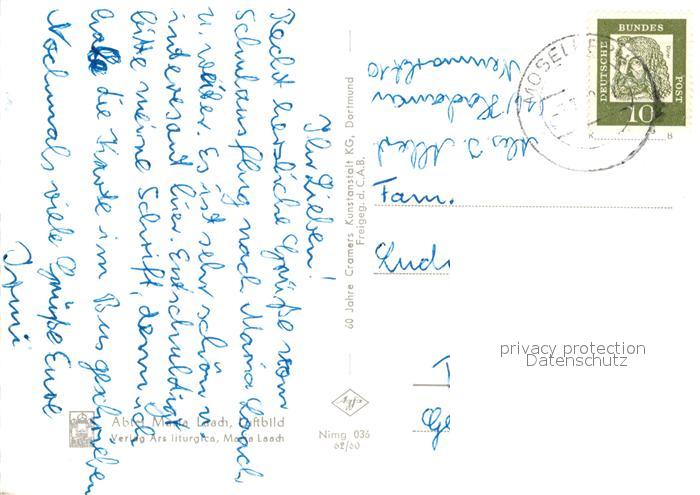 Ihr Lieben!
Recht herzliche Grüße vom
Schulausflug nach Maria Laach
u. weiter. Es ist sehr schön u.
interesant hier. Entschuldigt
bitte meine Schrift, denn ich
habe die Karte im Bus geschrieben
Nochmals viele Grüße Eure
Irmi
Abtei Maria Laach, Luftbild
Verlag Ars liturgica, Maria Laach
60 Jahre Cramers Kunstanstalt KG, Dortmund
Freigeg. d. C.A.B.
Agfa
Nimg 036
62/60
DEUTSCHE BUNDES POST
10
Hadamar
Neumarkt 10
Fam.
privacy protection
Datenschutz